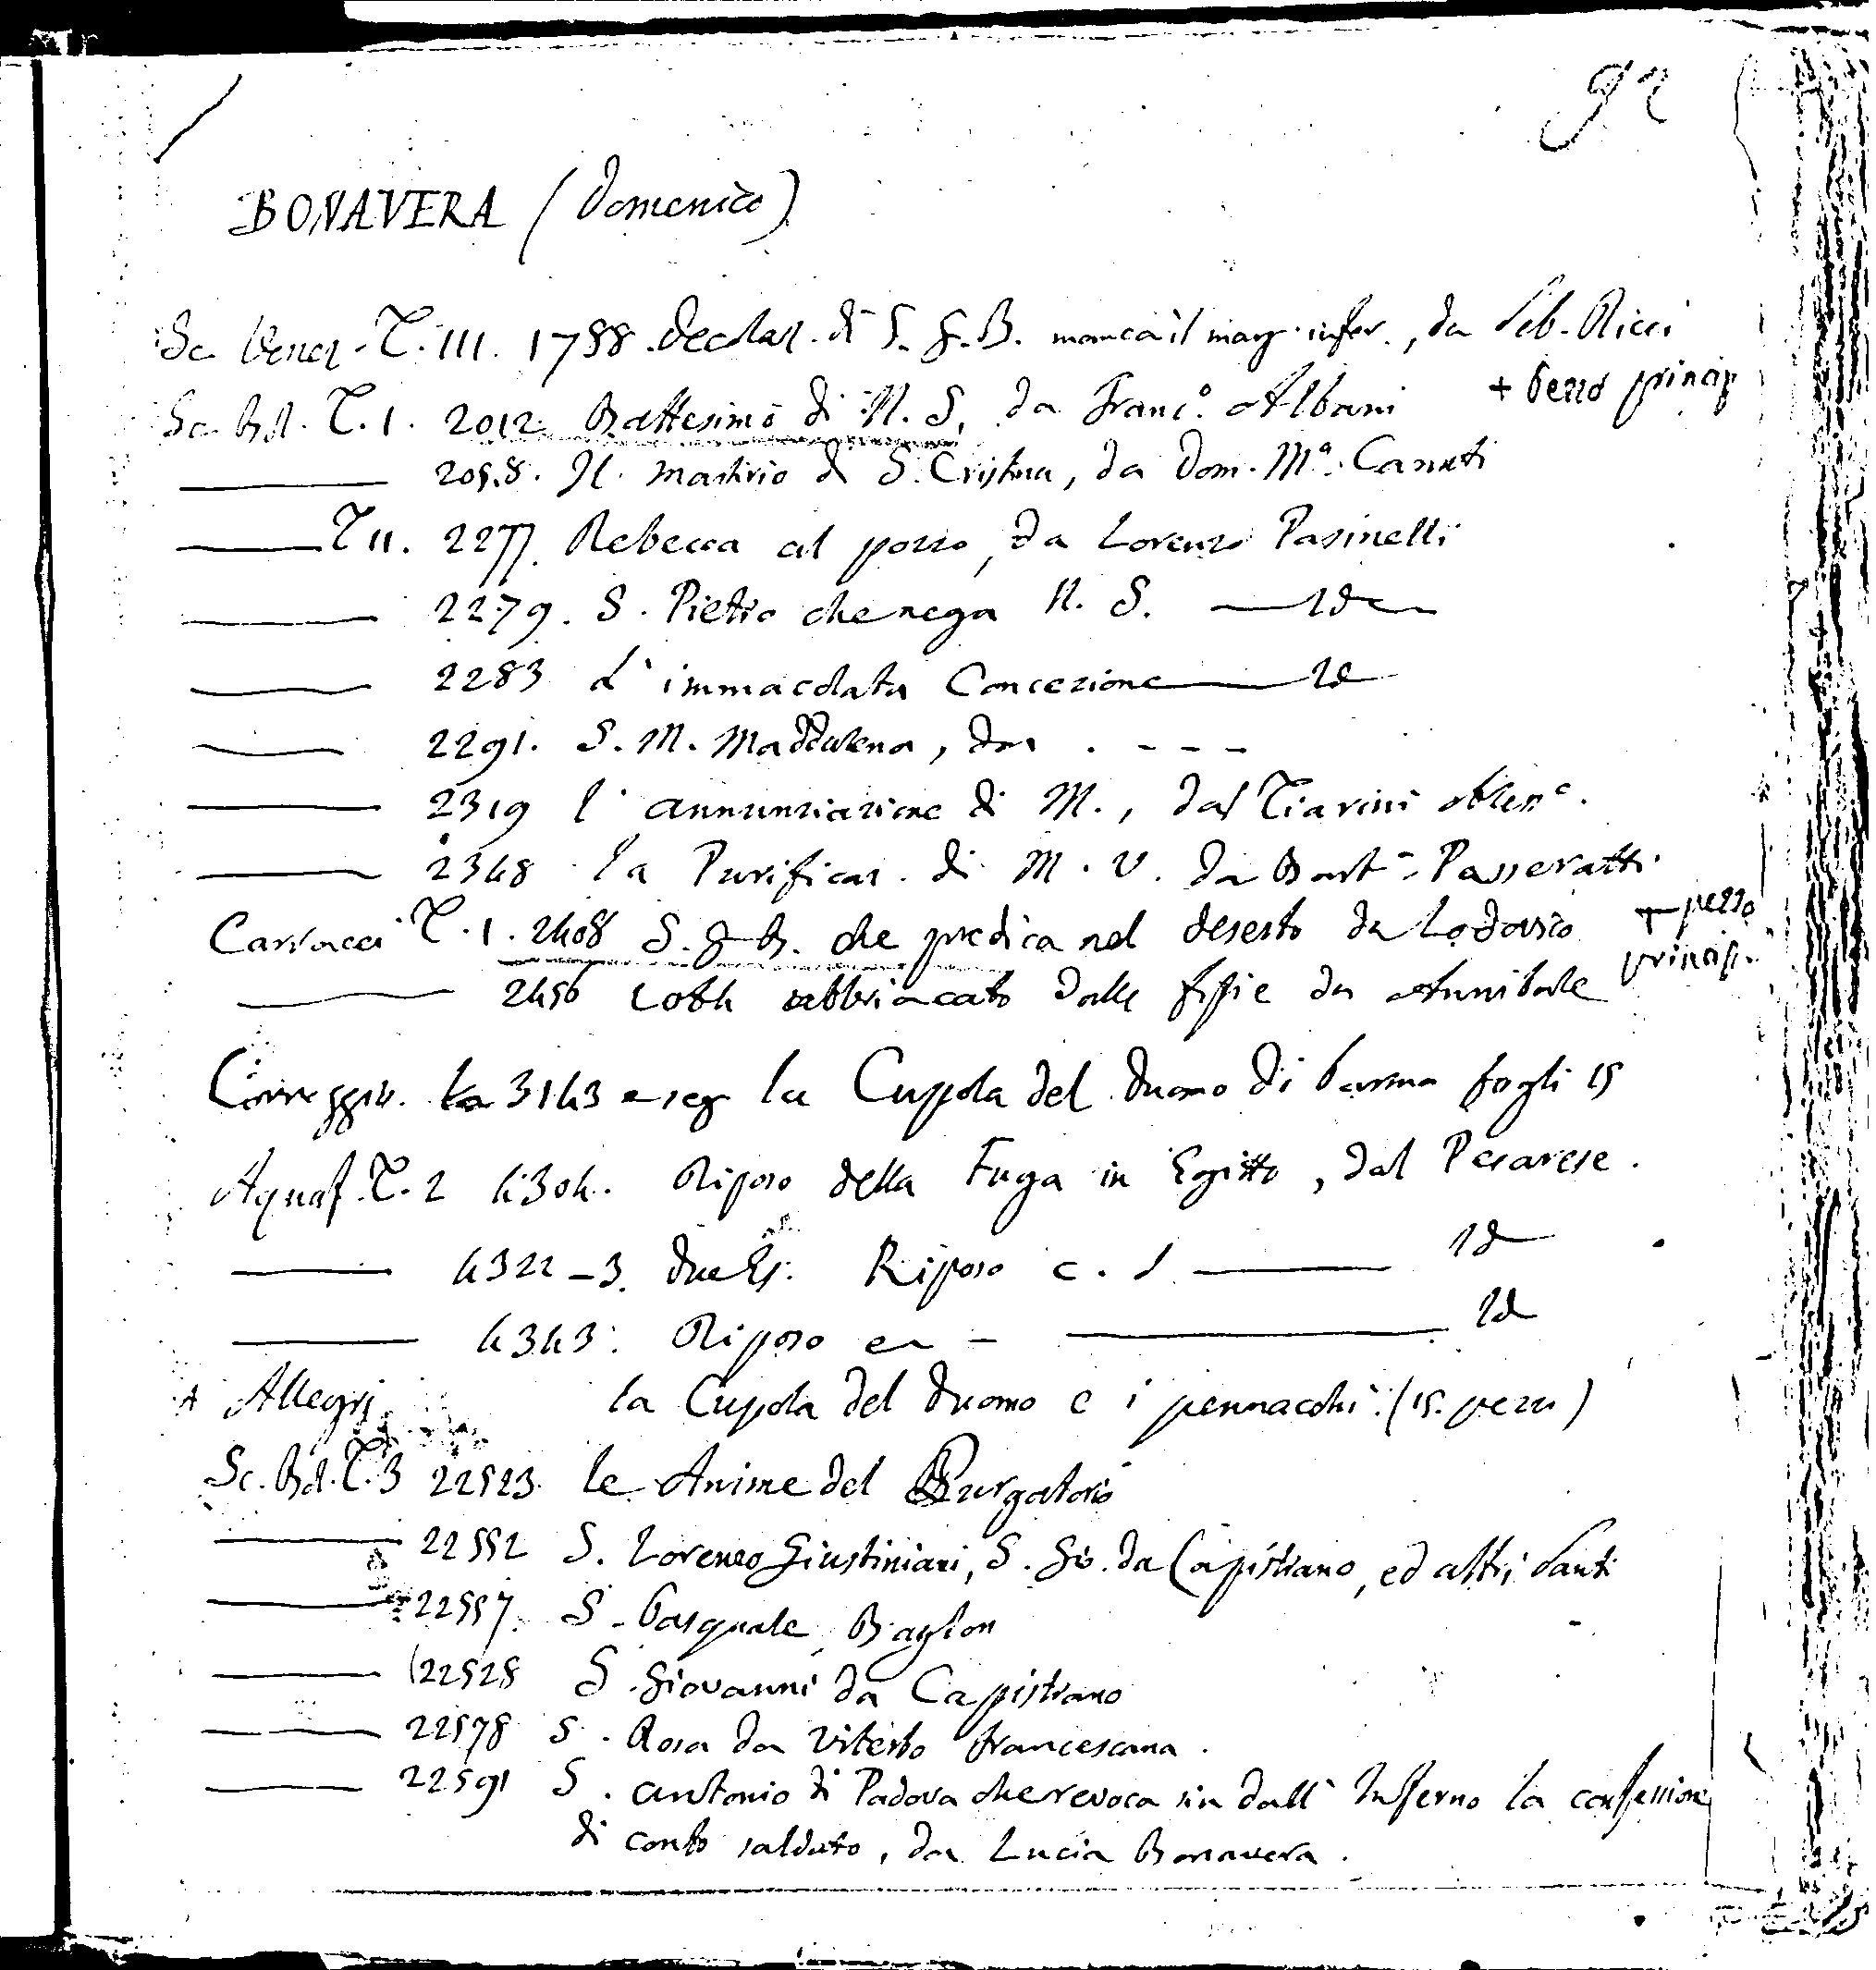 92
BONAVERA (Domenico)
Sc. Venez. T. III. 1788. Decolaz. di S. G. B. manca il marg. infer., da Seb. Ricci
Sc. Bol. T. I. 2012 Battesimo di N. S. da Franc.º Albani + Pezzo princip
2058. Il martirio di S. Cristina, da Dom. M.ª Canuti
T II. 2277. Rebecca al pozzo, da Lorenzo Pasinelli
2279. S. Pietro che nega N. S. — Id —
2283 L'immacolata Concezione — Id
2291. S. M. Maddalena, da . - - -
2319 l'annunziazione di M., dal Tiarini
2348 la Purificaz. di M. V. da Bart.º Passeratti
Carracci T. 1. 2408 S. G. B. che predica nel deserto da Lodovico + pezzo princip.
2456 Loth abbriacato dalle figlie da Annibale
Correggio. 3143 e seg la Cuppola del Duomo di Parma fogli 15
Aquaf. T. 2 4304. Riposo della Fuga in Egitto, dal Pesarese.
4322-3. due Es. Riposo c. s. — Id
4343. Riposo — Id
A Allegri la Cupola del Duomo e i pennacchi (15. pezzi)
Sc. Bol. T. 3 22523. le Anime del Purgatorio
22552 S. Lorenzo Giustiniani, S. Gio. da Capistrano, ed altri Santi
22557. S. Pasquale Baylon
22528 S. Giovanni da Capistrano
22578 S. Rosa da Viterbo francescana.
22591 S. Antonio di Padova che revoca sin dall' Inferno la confessione
di conto saldato, da Lucia Bonavera.